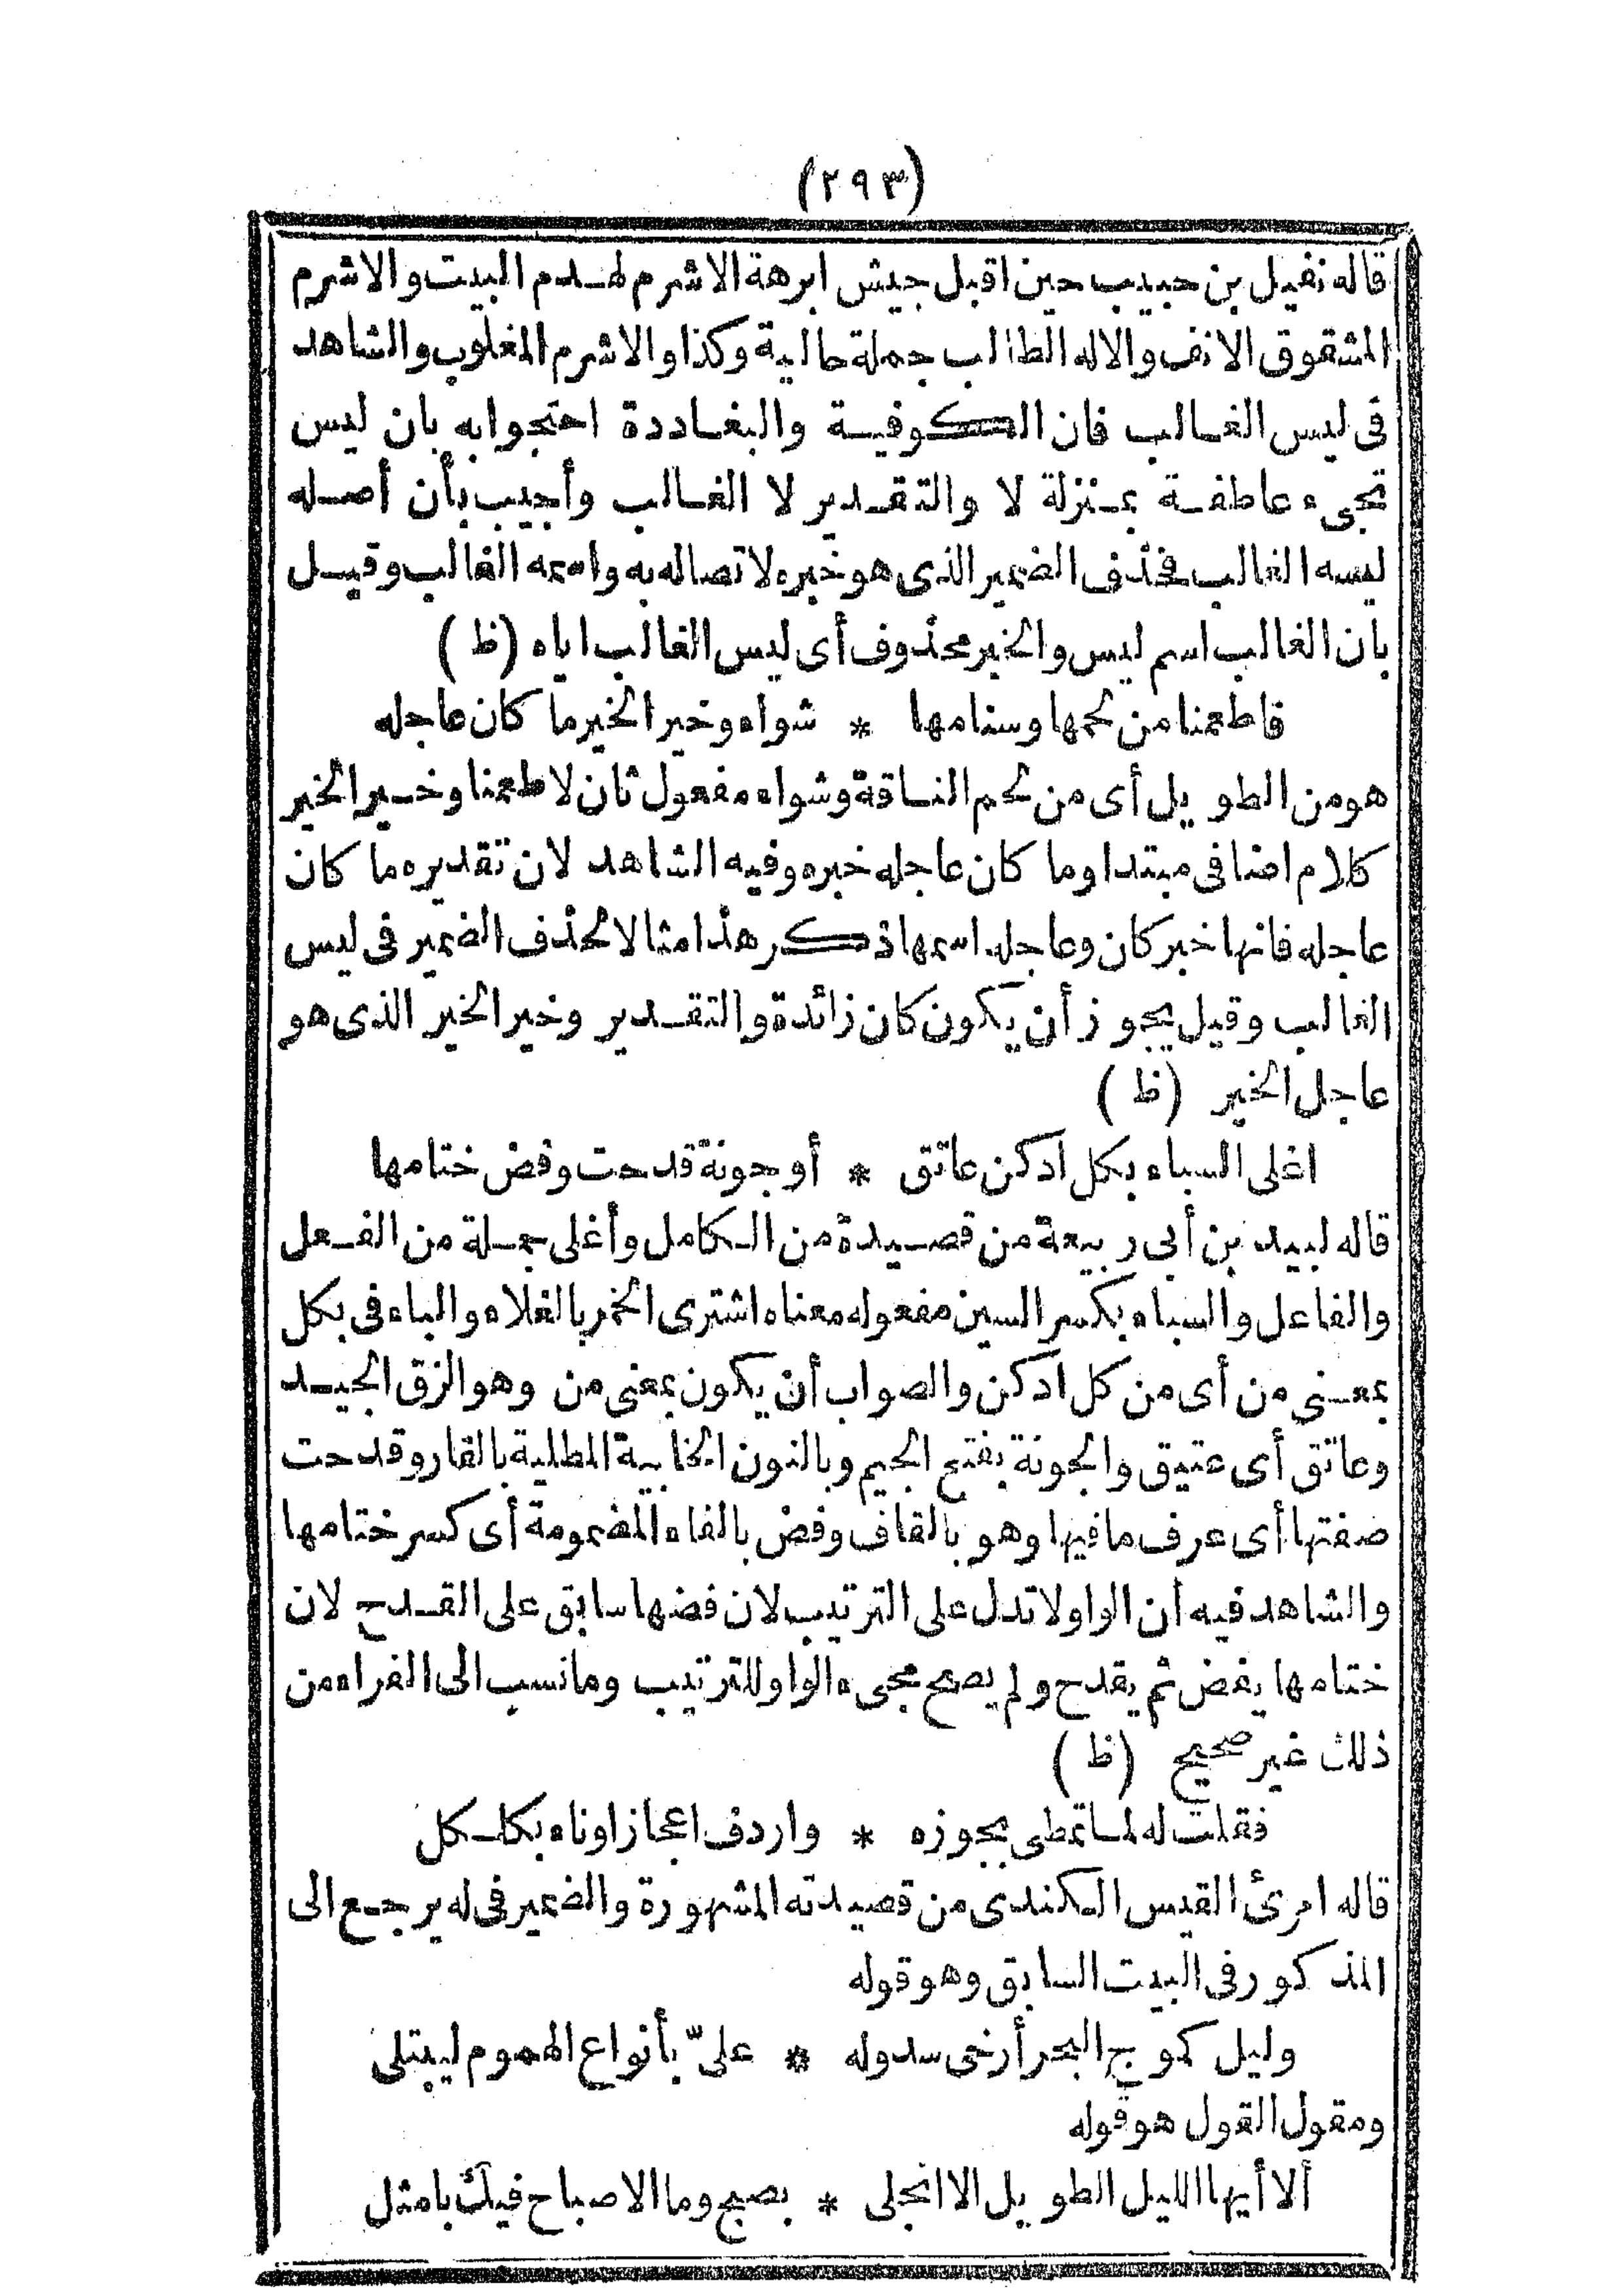 (٢٩٣)
قاله نفيل بن حبيب حين اقبل جيش ابرهة الاشرم لهدم البيت والاشرم
المشقوق الانف والاله الطالب جملة حالية وكذا والاشرم المغلوب والشاهد
فى ليس الغالب فان الكوفية والبغاددة احتجوا به بان ليس
تجىء عاطفة بمنزلة لا والتقدير لا الغالب وأجيب بأن أصله
ليسه الغالب فحذف الضمير الذى هو خبره لاتصاله به واسمه الغالب وقيل
بان الغالب اسم ليس والخبر محذوف أى ليس الغالب اياه (ظ)
فاطعمنا من لحمها وسنامها * شواء وخير الخير ما كان عاجله
هو من الطويل أى من لحم الناقة وشواء مفعول ثان لاطعمنا وخير الخير
كلام اضافى مبتدا وما كان عاجله خبره وفيه الشاهد لان تقديره ما كان
عاجله فانها خبر كان وعاجله اسمها ذكر هذا مثالا لحذف الضمير فى ليس
الغالب وقيل يجوز أن يكون كان زائدة والتقدير وخير الخير الذى هو
عاجل الخير (ظ)
اغلى السباء بكل ادكن عاتق * أو جونة قدحت وفض ختامها
قاله لبيد بن أبى ربيعة من قصيدة من الكامل وأغلى جملة من الفعل
والفاعل والسباء بكسر السين مفعوله معناه اشترى الخمر بالغلاء والباء فى بكل
بمعنى من أى من كل ادكن والصواب أن يكون بمعنى من وهو الزق الجيد
وعاتق أى عتيق والجونة بفتح الجيم وبالنون الخابية المطلية بالقار وقدحت
صفتها أى عرف ما فيها وهو بالقاف وفض بالفاء المضمومة أى كسر ختامها
والشاهد فيه أن الواو لا تدل على الترتيب لان فضها سابق على القدح لان
ختامها يفض ثم يقدح ولم يصح مجىء الواو للترتيب وما نسب الى الفراء من
ذلك غير صحيح (ظ)
فقلت له لما تمطى بجوزه * واردف اعجازا وناء بكلكل
قاله امرئ القيس الكندى من قصيدته المشهورة والضمير فى له يرجع الى
المذكور فى البيت السابق وهو قوله
وليل كموج البحر أرخى سدوله * علىّ بأنواع الهموم ليبتلى
ومقول القول هو قوله
ألا أيها الليل الطويل الا انجلى * بصبح وما الاصباح فيك بامثل